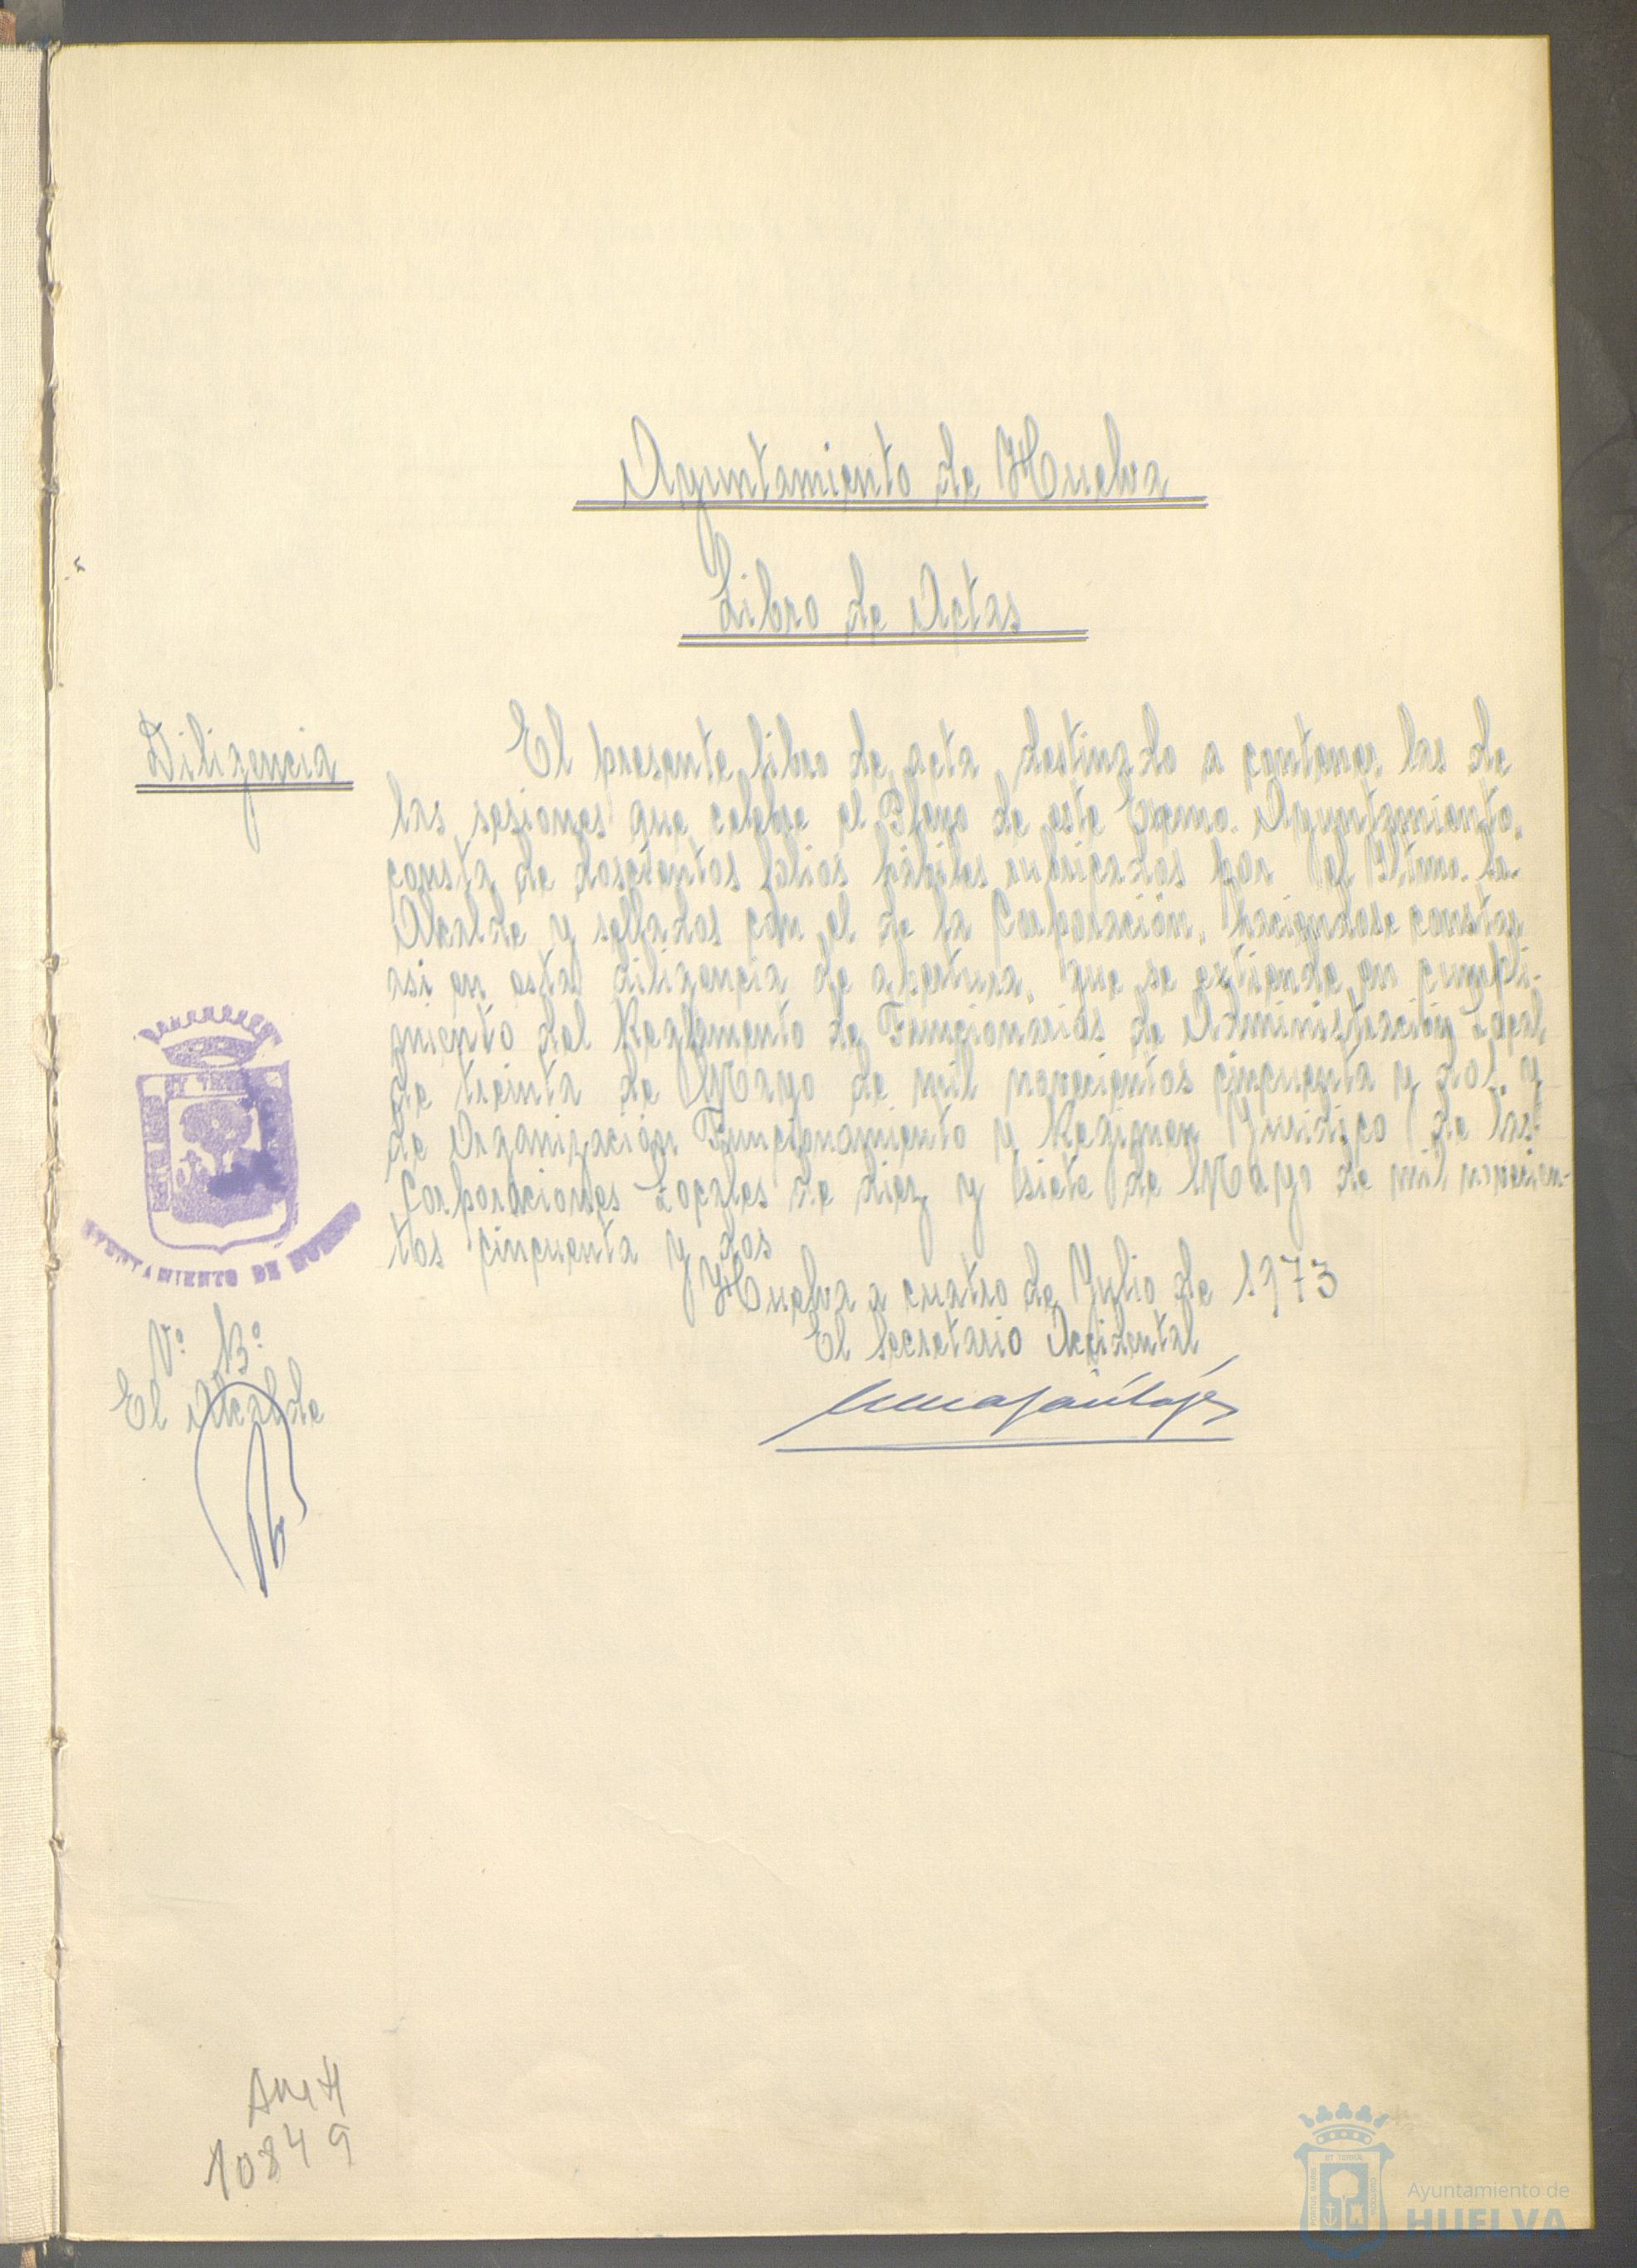 Ayuntamiento de Huelva
Libro de Actas
Diligencia
El presente libro de acta destinado a contener las de
las sesiones que celebre el Pleno de este Excmo. Ayuntamiento,
consta de doscientos folios hábiles rubricados por el Iltmo. Sr.
Alcalde y sellados con el de la Corporación, haciendose constar
asi en esta diligencia de apertura, que se extiende en cumpli-
miento del Reglamento de Funcionarios de Administración Local
de treinta de Mayo de mil novecientos cincuenta y dos y
de Organización Funcionamiento y Regimen Juridico de las
Corporaciones Locales de diez y siete de Mayo de mil novecien-
tos cincuenta y dos
Huelva a cuatro de Julio de 1973
El Secretario Accidental
AYUNTAMIENTO DE HUELVA
Vº Bº
El Alcalde
AMH
10849
Ayuntamiento de
HUELVA